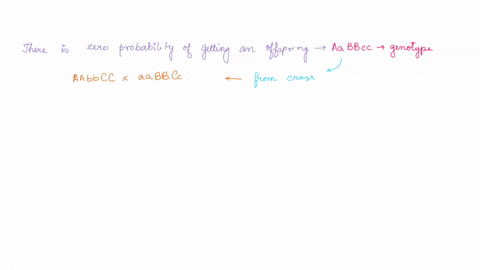 There is zero probability of getting an offspring → AaBBcc → genotype
AAbbCC x aaBBCc. ← from cross